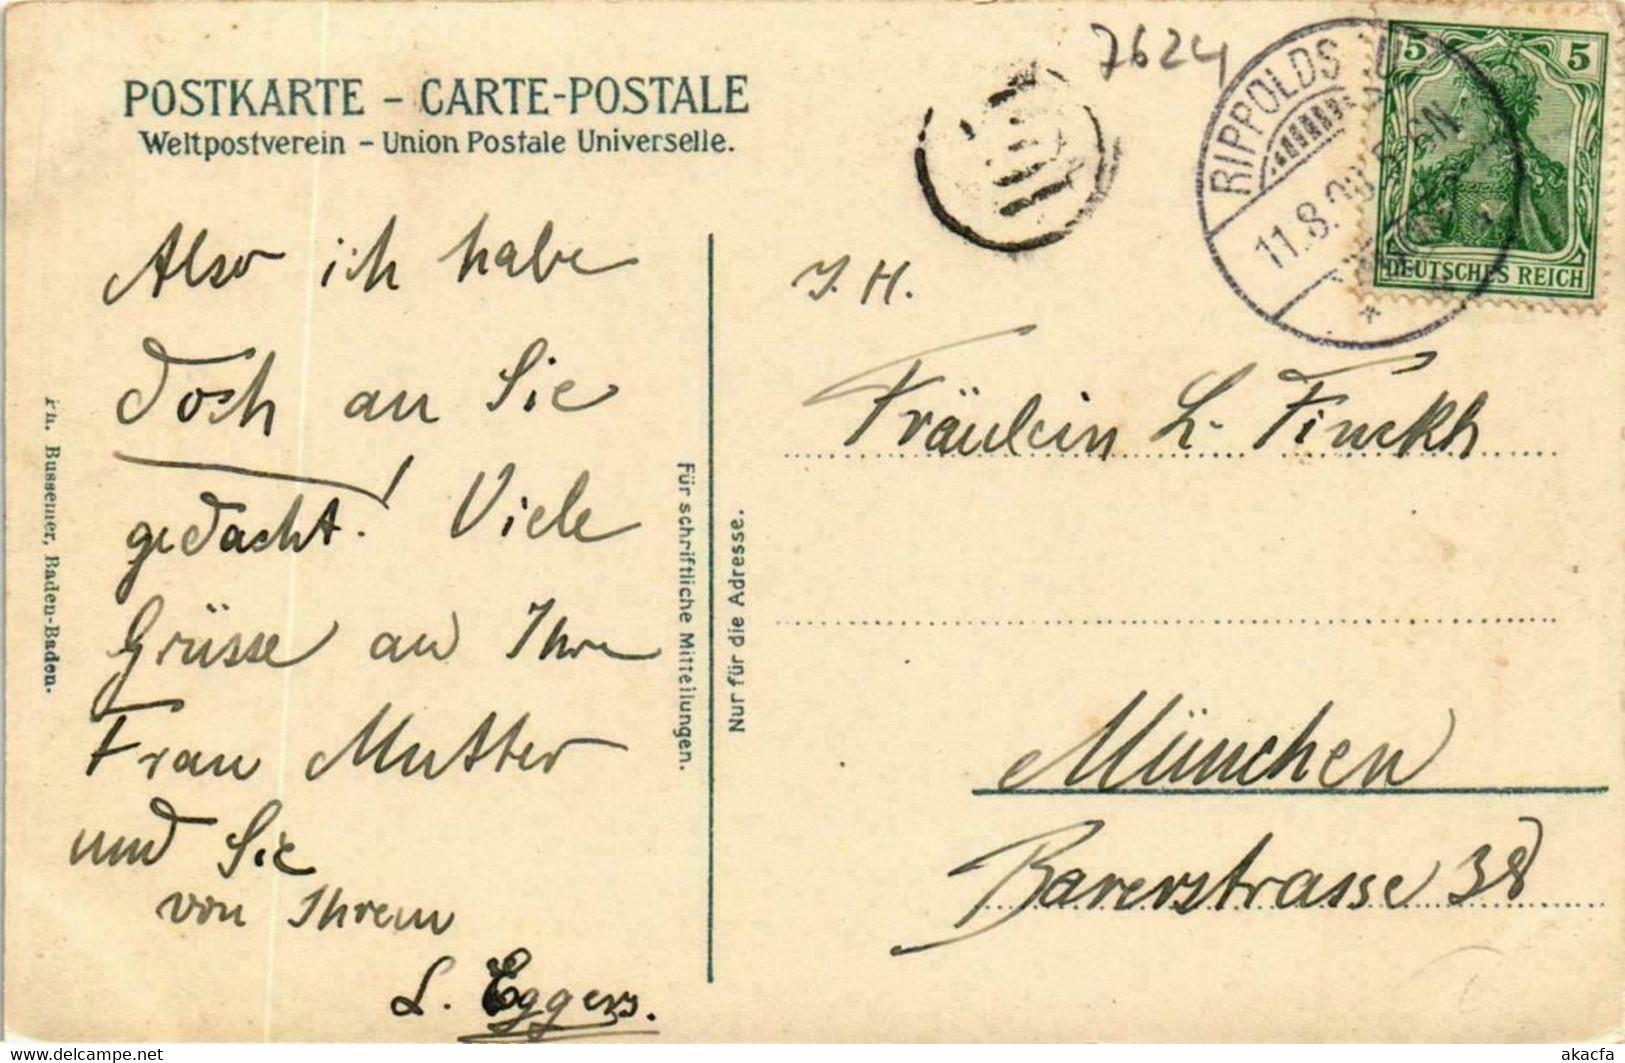 7624
POSTKARTE – CARTE-POSTALE
Weltpostverein – Union Postale Universelle.
RIPPOLDSAU
11.8.08
5-6N
5 5
DEUTSCHES REICH
Also ich habe
doch an Sie
gedacht! Viele
Grüsse an Ihre
Frau Mutter
und Sie
von Ihrem
L. Eggers.
Ph. Bussemer, Baden-Baden.
Für schriftliche Mitteilungen.
Nur für die Adresse.
I. H.
Fräulein L. Finckh
München
Barerstrasse 38
delcampe.net
akacfa